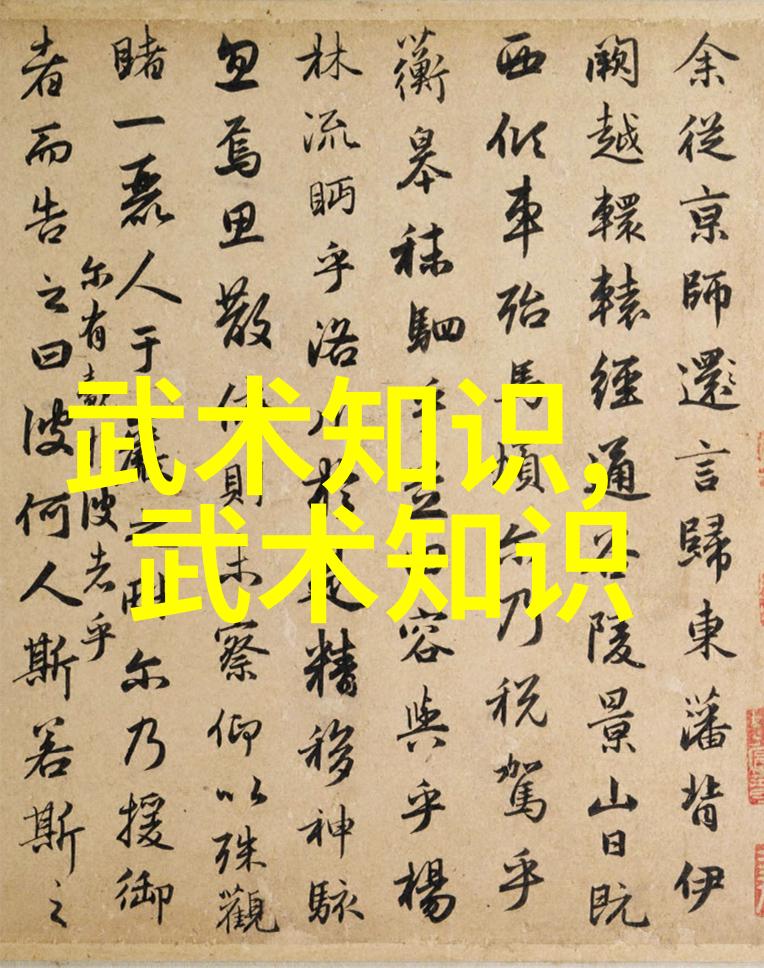 余從京師還言歸東藩背伊
闕越轘轅經通谷陵景山日既
西傾車殆馬煩尔乃税駕乎
蘅皋秣駟乎芝田容與乎楊
林流眄乎洛川於是精移神駭
忽焉思散俯則未察仰以殊觀
睹一麗人于巖之畔尔乃援御
者而告之曰彼何人斯若斯之
尔有覿於彼者乎
武术知识,
武术知识